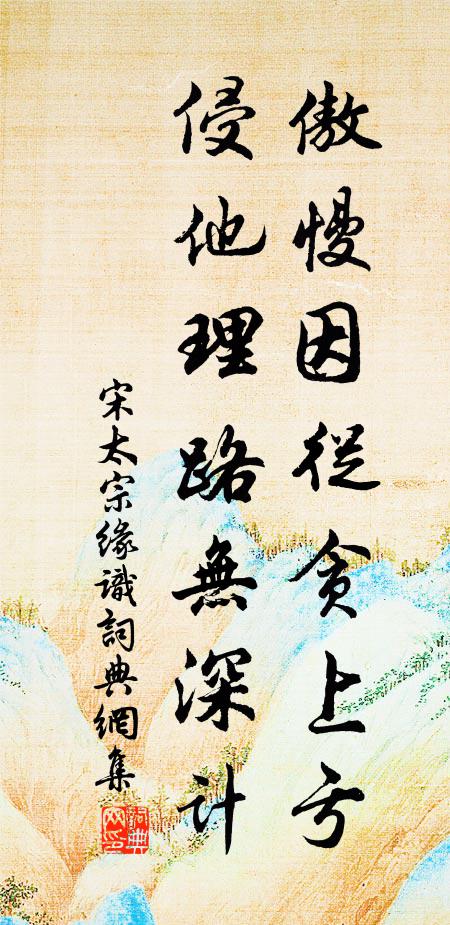 傲慢因從貪上亏
侵他理路無深計
宋太宗緣識詞典網集
詞典网印